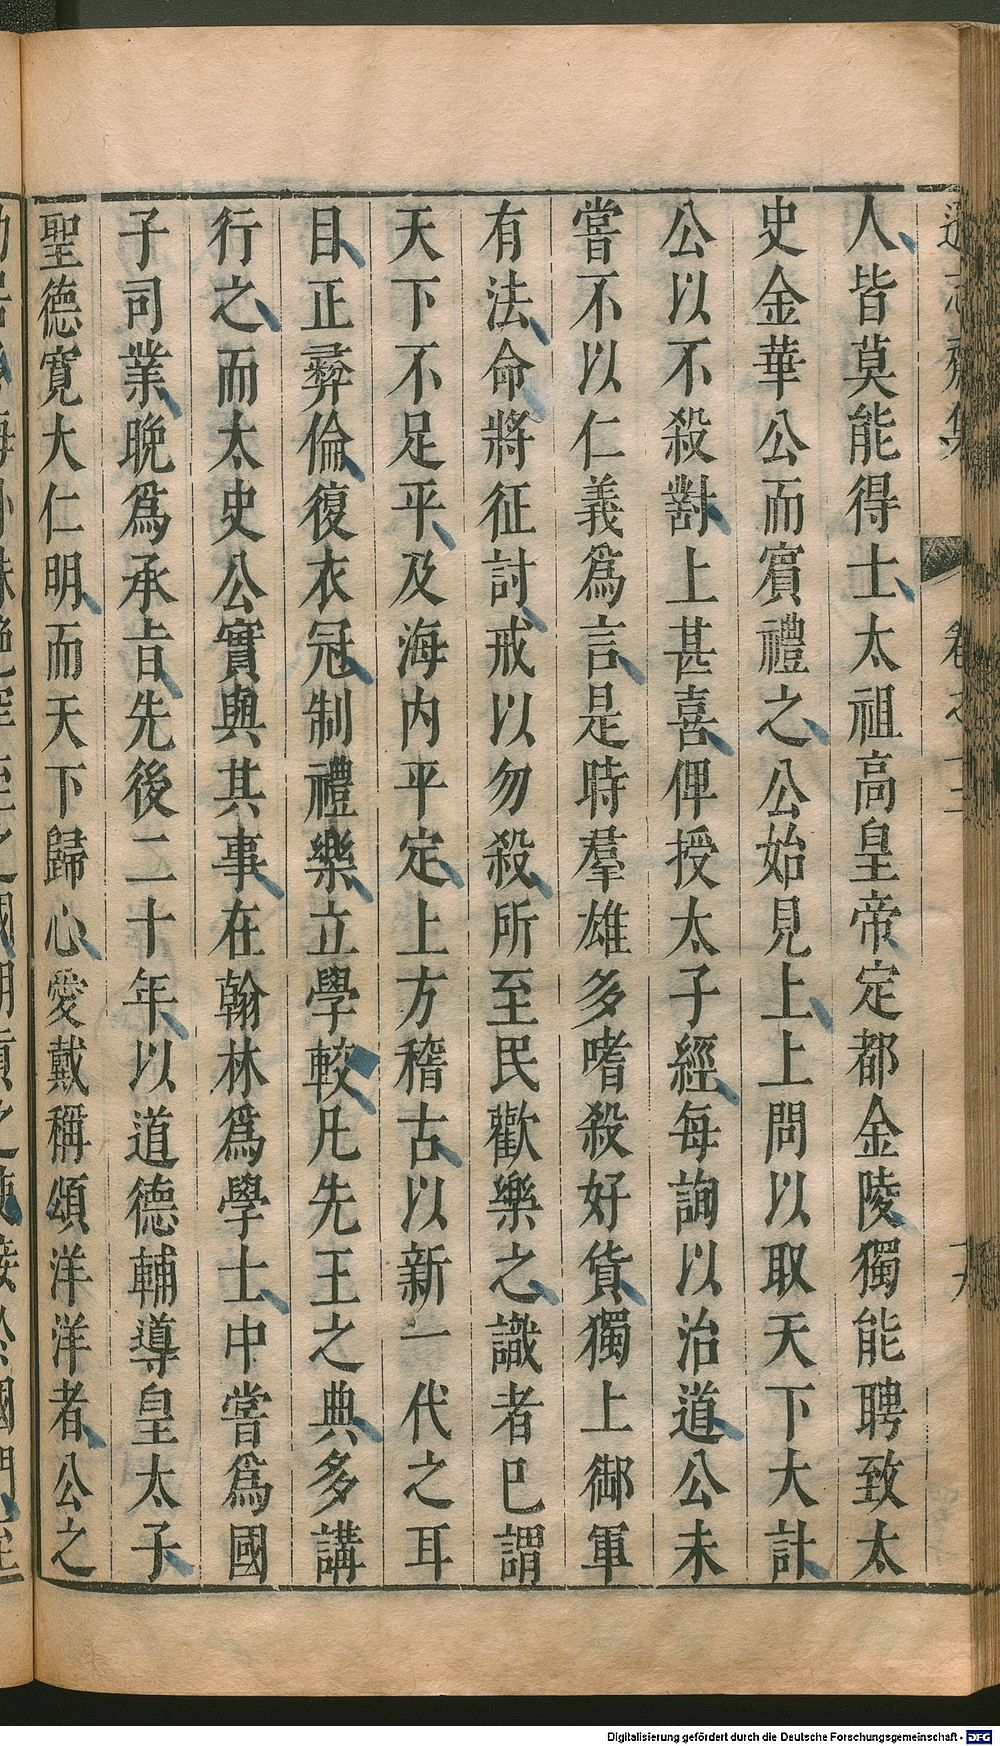 人皆莫能得士太祖高皇帝定都金陵獨能聘致太
史金華公而賔禮之公始見上上問以取天下大計
公以不殺對上甚喜俾授太子經每詢以治道公未
嘗不以仁義爲言是時羣雄多嗜殺好貨獨上御軍
有法命將征討戒以勿殺所至民歡樂之識者已謂
天下不足平及海内平定上方稽古以新一代之耳
目正彛倫復衣冠制禮樂立學較凡先王之典多講
行之而太史公實與其事在翰林爲學士中嘗爲國
子司業晚爲承旨先後二十年以道德輔導皇太子
聖德寛大仁明而天下歸心愛戴稱頌洋洋者公之
Digitalisierung gefördert durch die Deutsche Forschungsgemeinschaft - DFG